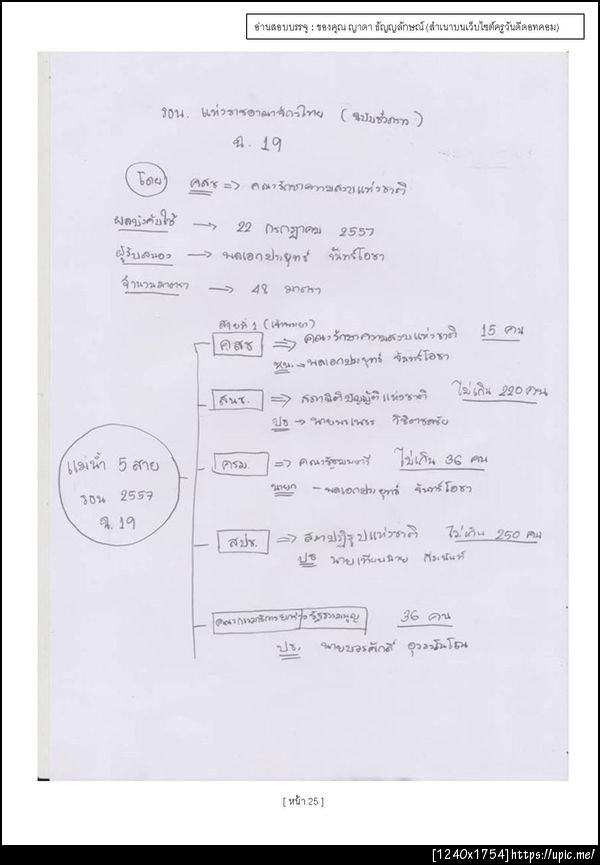 อ่านสอบบรรจุ : ของคุณ ญาดา ธัญญลักษณ์ (สำเนาบนเว็บไซต์ครูวันดีดอทคอม)
รธน. แห่งราชอาณาจักรไทย (ฉบับชั่วคราว)
ฉ. 19
โดย คสช => คณะรักษาความสงบแห่งชาติ
ผลบังคับใช้ → 22 กรกฎาคม 2557
ผู้รับสนอง → พลเอกประยุทธ์ จันทร์โอชา
จำนวนมาตรา → 48 มาตรา
สายที่ 1 (เจ้าพระยา)
คสช => คณะรักษาความสงบแห่งชาติ 15 คน
หน. → พลเอกประยุทธ์ จันทร์โอชา
สนช. => สภานิติบัญญัติแห่งชาติ ไม่เกิน 220 คน
ปธ → นายพรเพชร วิชิตชลชัย
แม่น้ำ 5 สาย
รธน 2557
ฉ.19
ครม. => คณะรัฐมนตรี ไม่เกิน 36 คน
นายก - พลเอกประยุทธ์ จันทร์โอชา
สปช. => สภาปฏิรูปแห่งชาติ ไม่เกิน 250 คน
ปธ นายเทียนฉาย กีระนันทน์
คณะกรรมาธิการยกร่างรัฐธรรมนูญ 36 คน
ปธ. นายบวรศักดิ์ อุวรรณโณ
[ หน้า 25 ]
[1240x1754]https://upic.me/